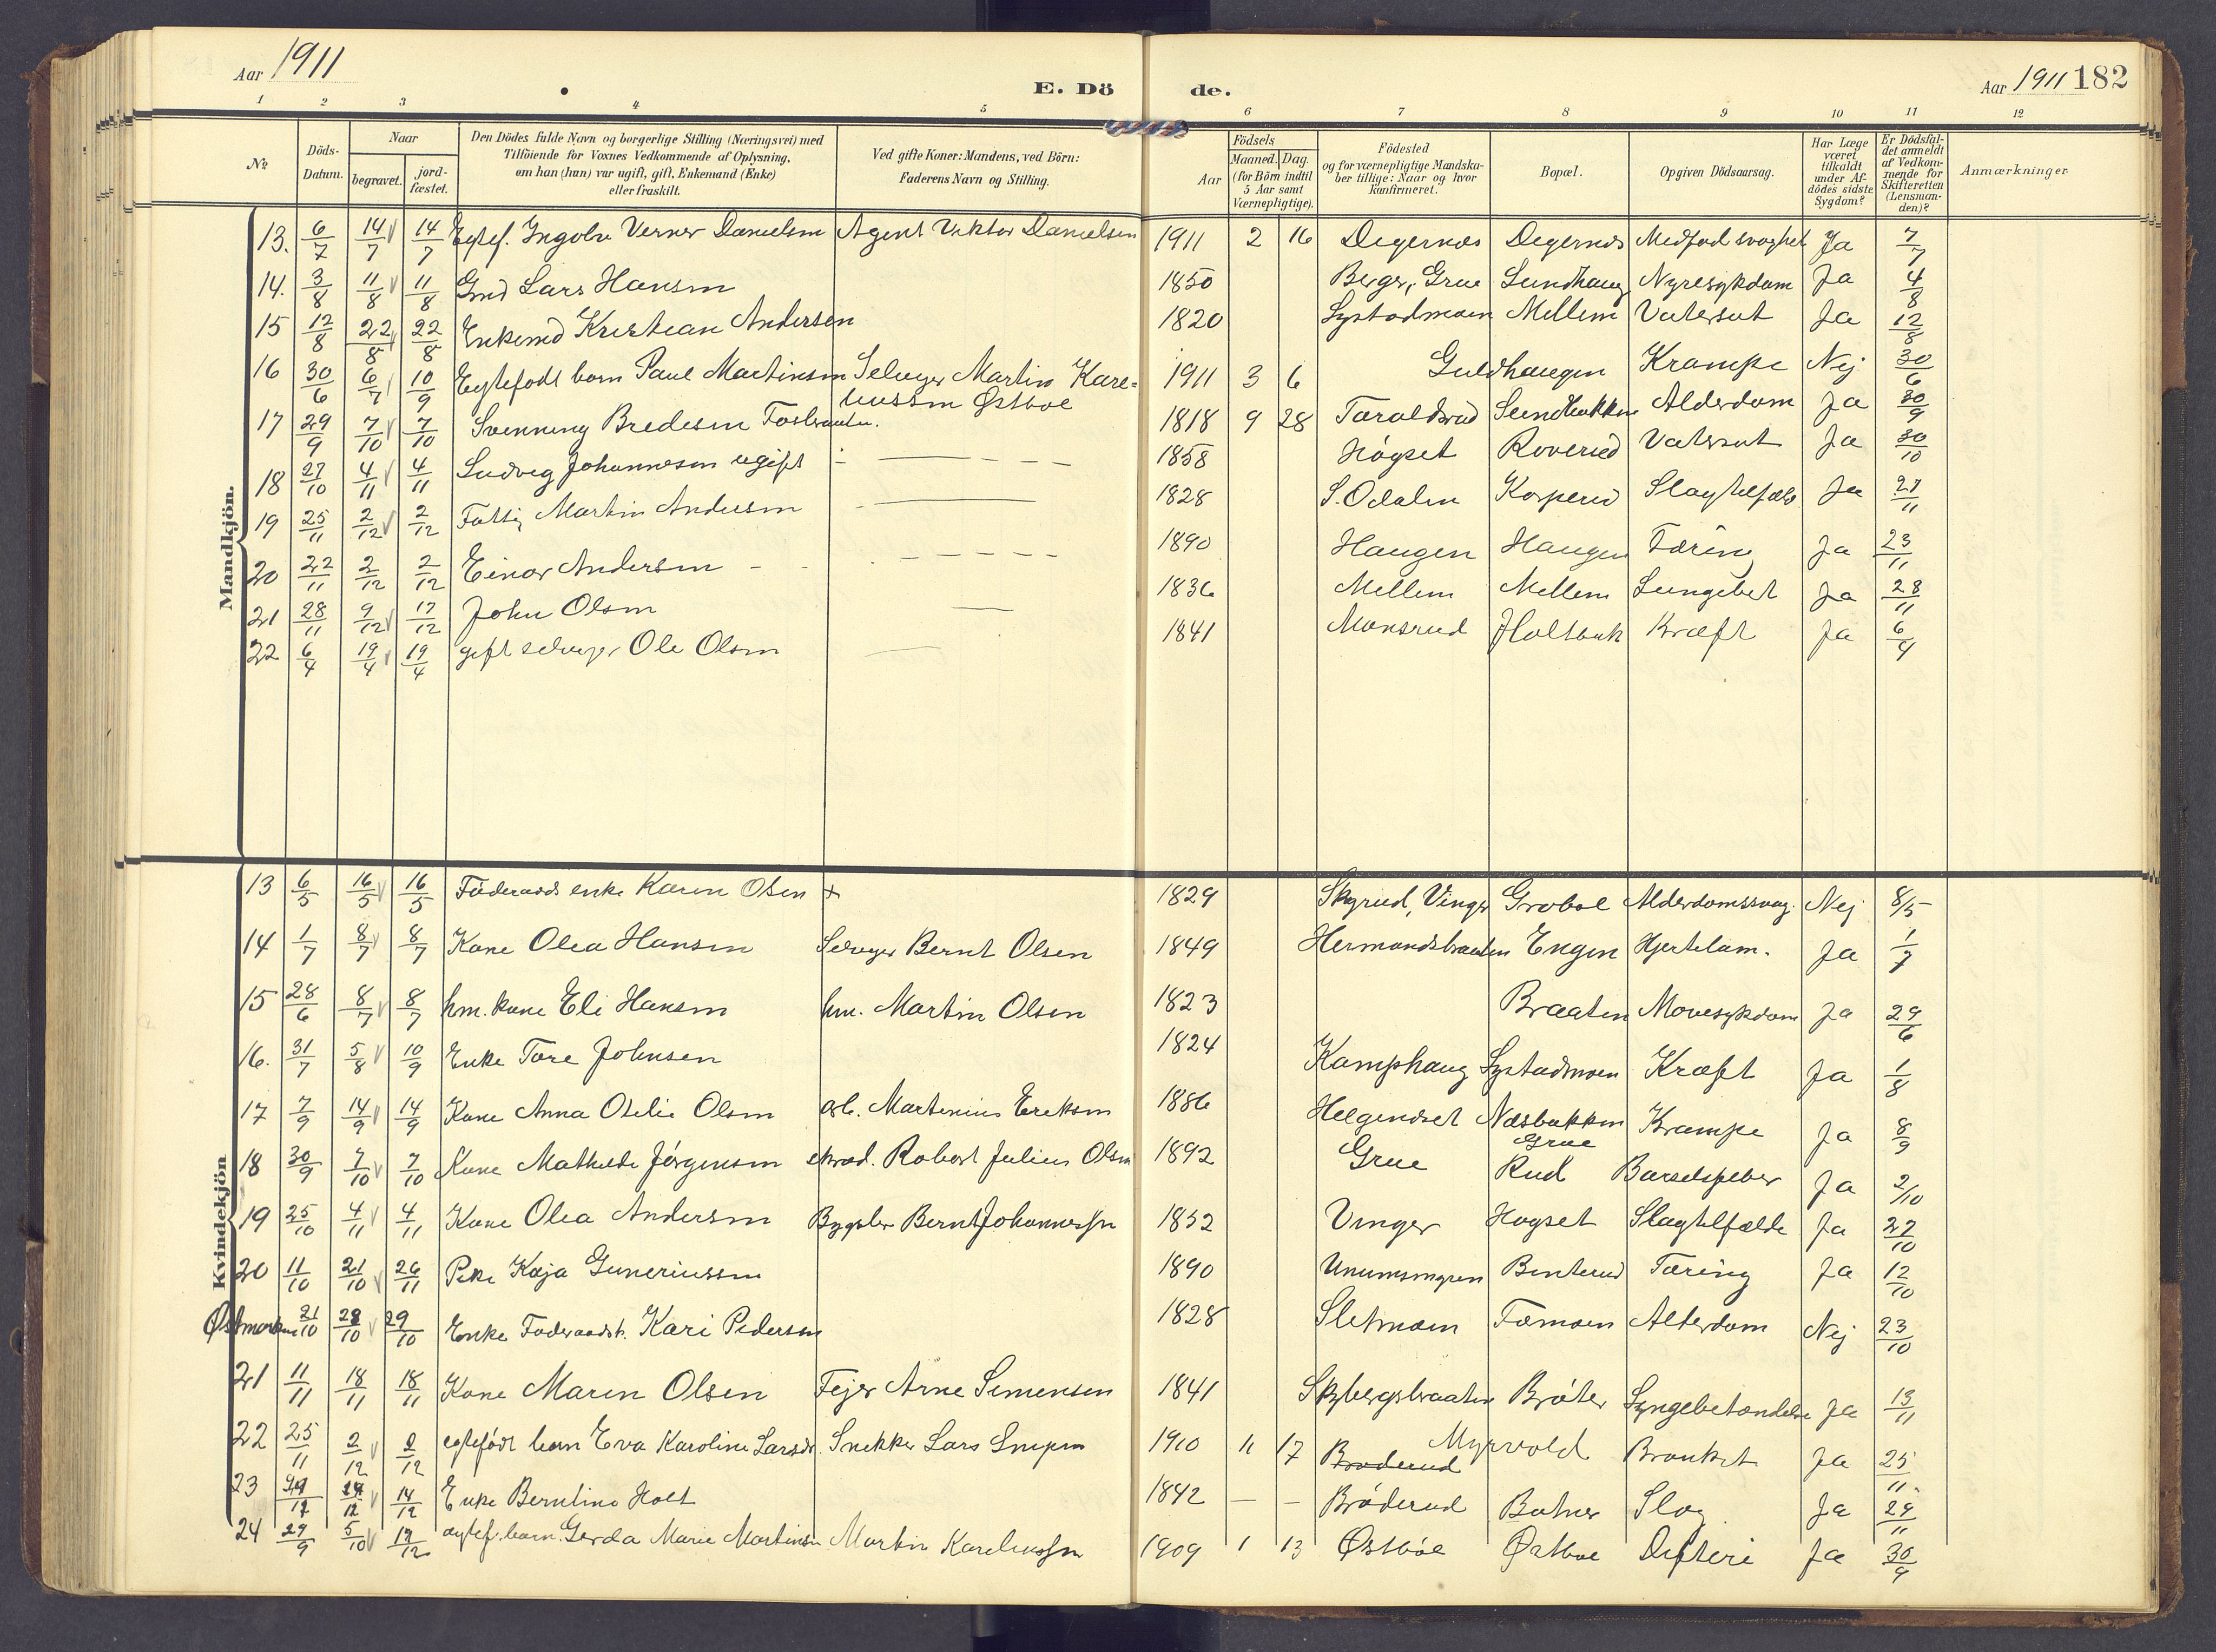 Aar 1911
E. Dö de.
Aar 1911 182
1 2 3 4 5 6 7 8 9 10 11 12
No
Döds-Datum.
Naar begravet. jordfæstet.
Den Dödes fulde Navn og borgerlige Stilling (Næringsvei) med
Tilföiende for Voxnes Vedkommende af Oplysning,
om han (hun) var ugift, gift, Enkemand (Enke)
eller fraskilt.
Ved gifte Koner: Mandens, ved Börn:
Faderens Navn og Stilling.
Födsels
Aar
Maaned. Dag.
(for Börn indtil
5 Aar samt
Værnepligtige).
Födested
og for værnepligtige Mandskaber tillige: Naar og hvor
konfirmeret.
Bopæl.
Opgiven Dödsaarsag.
Har Læge
været
tilkaldt
under Afdödes sidste
Sygdom?
Er Dödsfaldet anmeldt
af Vedkommende for
Skifteretten
(Lensmanden)?
Anmærkninger
Mandkjön.
13. 6/7 14/7 14/7 Egtef. Ingolv Verner Danielsen Agent Viktor Danielsen 1911 2 16 Degernes Degernes Medfød svaghet Ja 7/7
14. 3/8 11/8 11/8 Gmd Lars Hansen 1850 Berger, Grue Sundhaug Nyresykdom Ja 4/8
15 12/8 22/8 22/8 Enkemd Kristian Andersen 1820 Systadmoen Mellem Vatersot Ja 12/8
16 30/6 6/7 10/9 Egtefødt barn Paul Martinsen Selveger Martin Kareliussen Østbøe 1911 3 6 Guldhaugen Krampe Nej 30/6
17 29/9 7/10 7/10 Svenning Bredesen 1818 9 28 Taraldsrud Sundbakken Alderdom Ja 30/9
18 27/10 4/11 4/11 Ludvig Johannesen ugift 1858 Høgset Roverud Vatersot Ja 30/10
19 25/11 2/12 2/12 Fattig Martin Andersen 1828 S. Odalen Kosperud Slagtilfælde Ja 27/11
20 22/11 2/12 2/12 Einar Andersen 1890 Haugen Haugen Tæring Ja 23/11
21 28/11 9/12 17/12 John Olsen 1836 Mellem Mellem Lungebet Ja 28/11
22 6/4 19/4 19/4 gift selveger Ole Olsen 1841 Monsrud Holtbak Kræft Ja 6/4
Kvindekjön
13 6/5 16/5 16/5 Føderaads enke Karen Olsen + 1829 Skyrud, Vinger Grøboe Alderdomssvag. Nej 8/5
14 1/7 8/7 8/7 Kone Olea Hansen Selveger Bernt Olsen 1849 Hermandsbraaten Engen Hjertelam. Ja 1/7
15 28/6 8/7 8/7 hm. kone Eli Hansen hm. Martin Olsen 1823 Braaten Mavesykdom Ja 29/6
16. 31/7 5/8 10/9 Enke Tore Johnsen 1824 Kamphaug Systadmoen Kræft Ja 1/8
17 7/9 14/9 14/9 Kone Anna Otelie Olsen arb. Martinius Eriksen 1886 Helgenset Næsbakken Grue Krampe Ja 8/9
18 30/9 7/10 7/10 Kone Mathilde Jørgensen skræd. Robert Julius Olsen 1892 Grue Rud Barselfeber Ja 2/10
19 25/10 4/11 4/11 Kone Olea Andersen Bygsler Bernt Johannessen 1852 Vinger Høgset Slagtilfælde Ja 27/10
20 11/10 21/10 26/11 Pike Kaja Guneriussen 1890 Benterud Tæring Ja 12/10
Østmarken 21/10 28/10 29/10 Enke Føderaadsk. Kari Pedersen 1828 Sletmoen Tømoen Alderdom Nej 23/10
21 11/11 18/11 18/11 Kone Maren Olsen Fejer Arne Simensen 1841 Skybergsbraaten Brøter Lungebetændelse Ja 13/11
22 25/11 2/12 2/12 egtefødt barn Eva Karoline Larsdr. Snekker Lars 1910 11 17 Brøderud Myrvold Bronkit Ja 25/11
23 14/12 Enke Berntine Holt 1842 – – Brøderud Botner Slag Ja 29/11
24 29/9 5/10 17/12 egtef. barn Gerda Marie Martinsen Martin Kareliussen 1909 1 13 Østbøe Østboe Difteri Ja 30/9